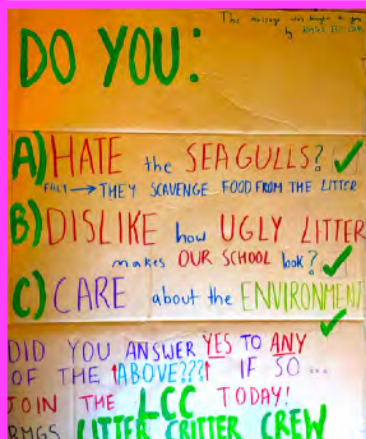 The message was brought to you
by
DO YOU:
A) HATE the SEAGULLS? ✓
FACT → THEY SCAVENGE FOOD FROM THE LITTER
B) DISLIKE how UGLY LITTER
makes OUR SCHOOL look? ✓
C) CARE about the ENVIRONMENT
✓
DID YOU ANSWER YES TO ANY
OF THE ↑ABOVE???↑ IF SO...
JOIN THE LCC TODAY!
RMGS LITTER CRITTER CREW